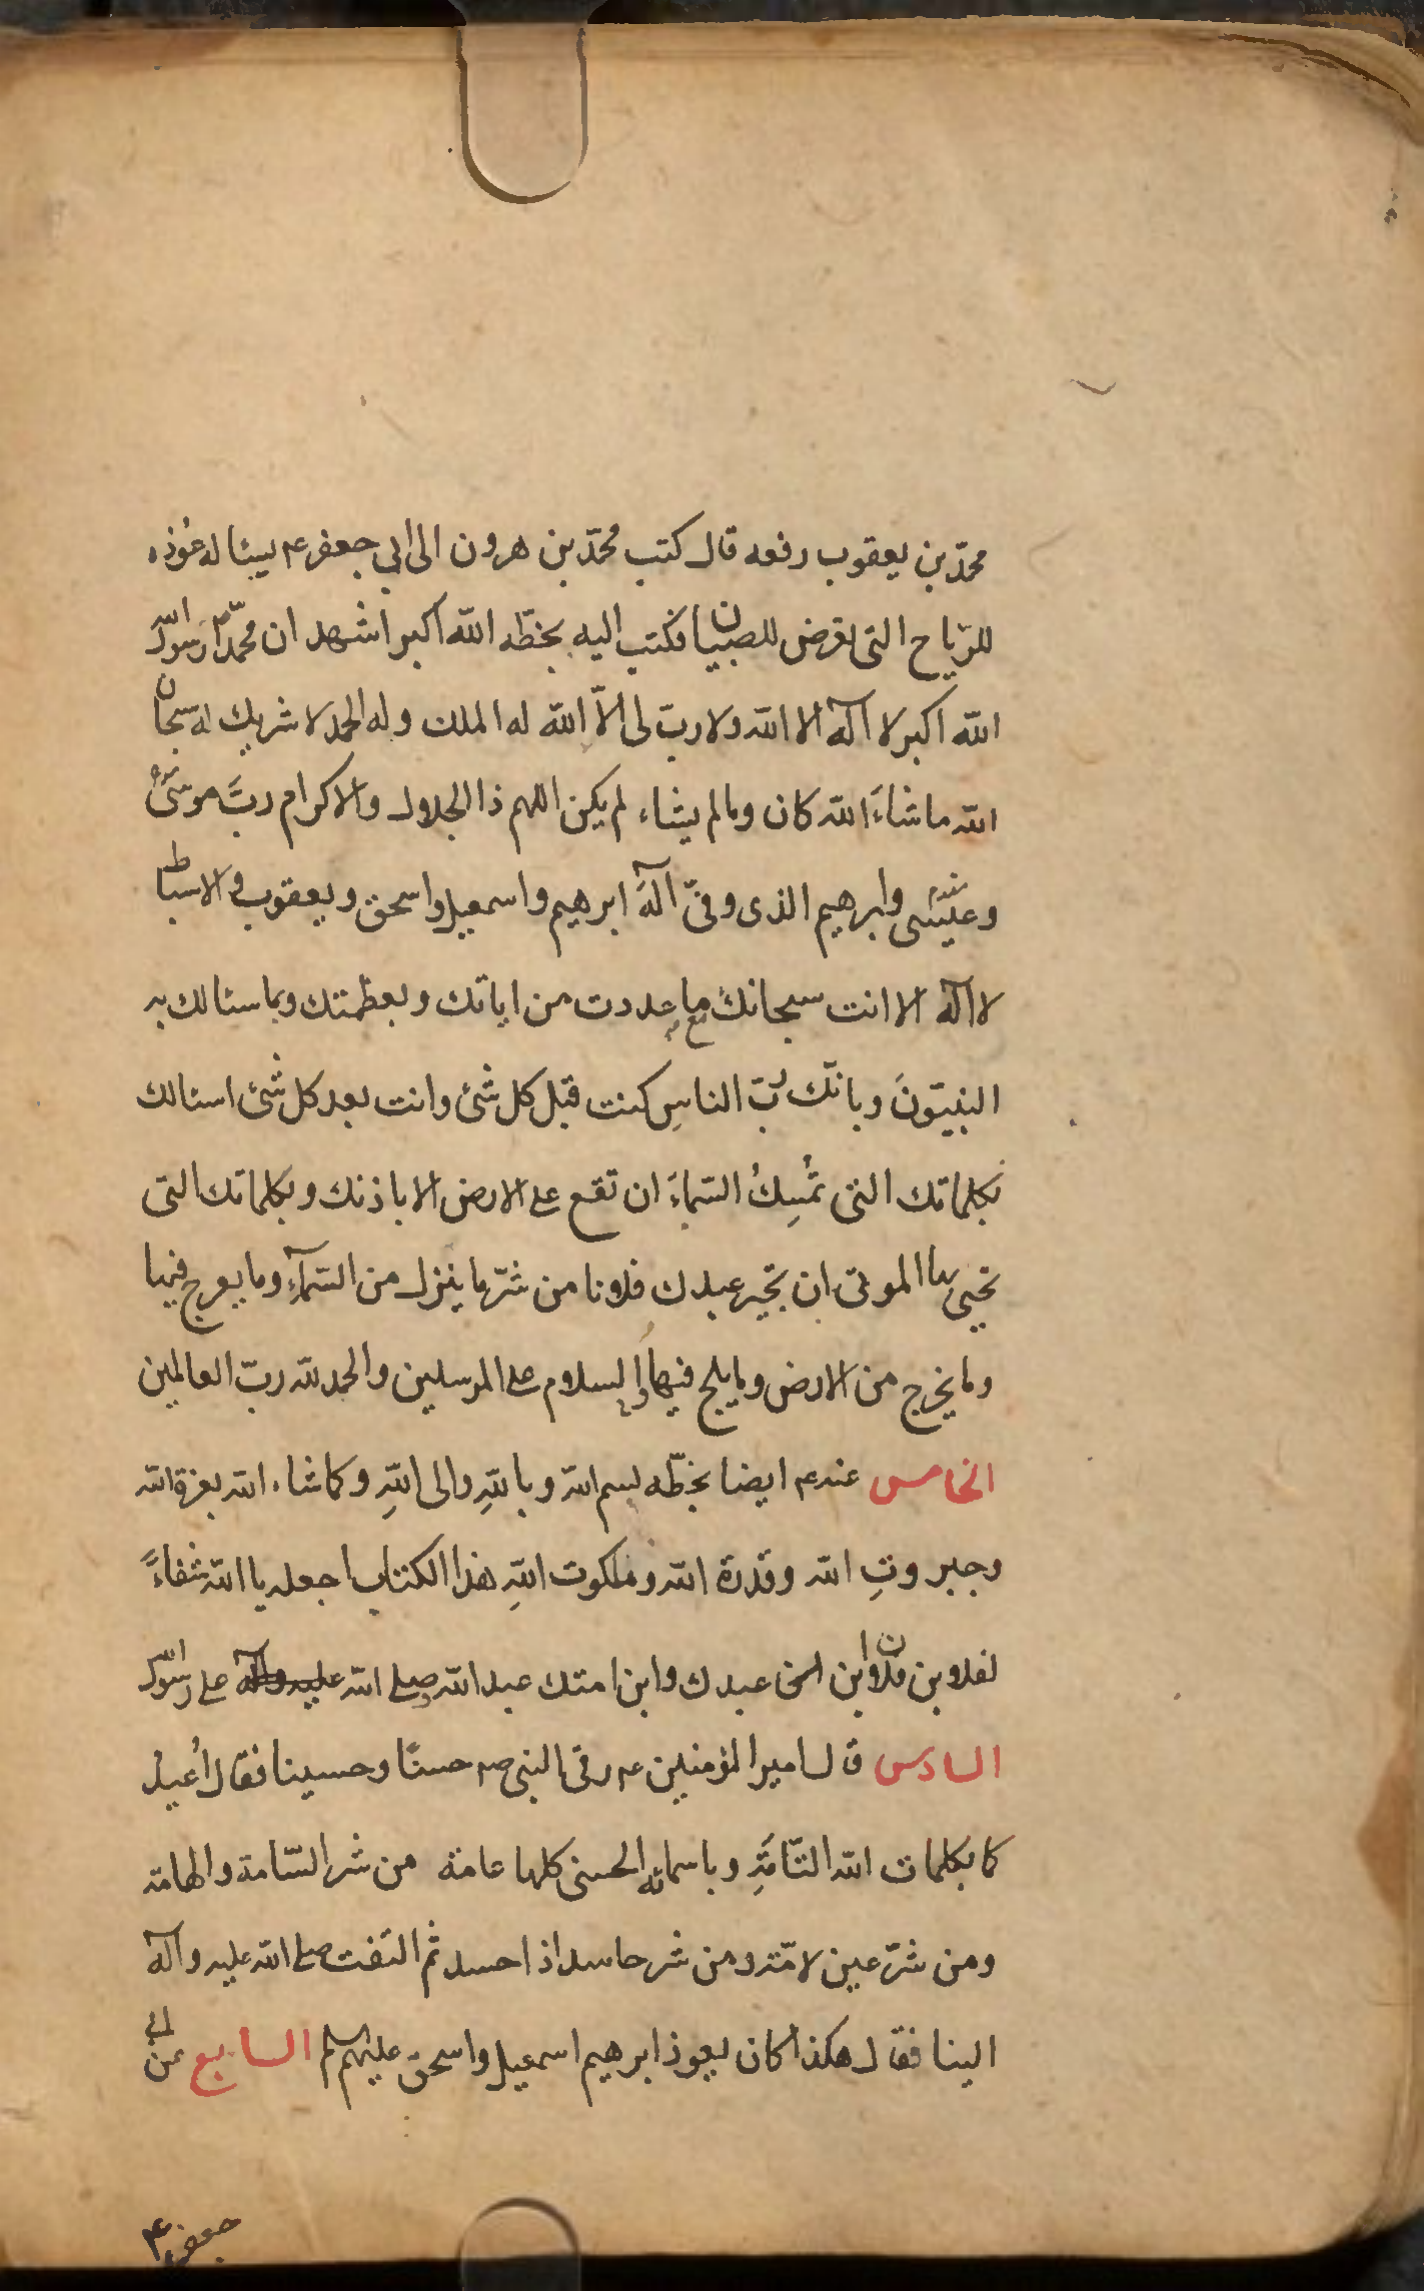 محمّد بن يعقوب رفعه قال كتب محمّد بن هرون الى ابي جعفر ع يسئاله عُوذه
للرّياح التى تعرض للصبيان فكتب اليه بخطّه الله اكبر اشهد ان محمّدًا رسول الله
الله اكبر لا آله الا الله ولا ربّ لى الاّ الله له الملك وله الحمد لا شريك له سبحان
الله ما شاءَ الله كان وما لم يشاء لم يكن اللهم ذا الجلال والاكرام ربَّ موسىٰ
وعيسٰى وابرهيم الذى وفىّ آلهَ ابرهيم واسمعيل واسحق ويعقوب والاسباط
لا اله الا انت سبحانك مع ما عددت من اياتك وبعظمتك وبما سئالك به
النبيّونَ وبانّك ربّ الناسِ كنت قبل كل شئ وانت بعد كل شئ اسئالك
بكلماتك التى تُمسِكُ السّماءَ ان تقع على الارض الا باذنك وبكلماتك التى
تحيى بها الموتى ان تجير عبدك فلانا من شرّ ما ينزل من السّمآءِ وما يعرج فيها
وما يخرج من الارض وما يلج فيها والسلام على المرسلين والحمد لله ربّ العالمين
الخامس عنه ع ايضا بخطّه بسم الله وباللهِ والى اللهِ وكما شاء الله بعزة الله
وجبروتِ الله وقدرة الله وملكوت اللهِ هذا الكتاب اجعله يا الله شفاءً
لفلان بن فلان ابن عبدك وابن امتك عبد الله صلى الله عليه وآله على رسول الله
السادس قال امير المؤمنين ع رقى النبى ص حسنًا وحسينا فقال اُعيذ
كما بكلمات الله التّامّةِ وباسمائه الحسنى كلها عامة من شر السّامة والهامة
ومن شرّ عين لامّة ومن شر حاسد اذا حسد ثم التفت صلى الله عليه وآله
الينا فقال هكذا كان يعوذ ابرهيم اسمعيل واسحق عليهم السلم السابع عن ابى
جعفر ع